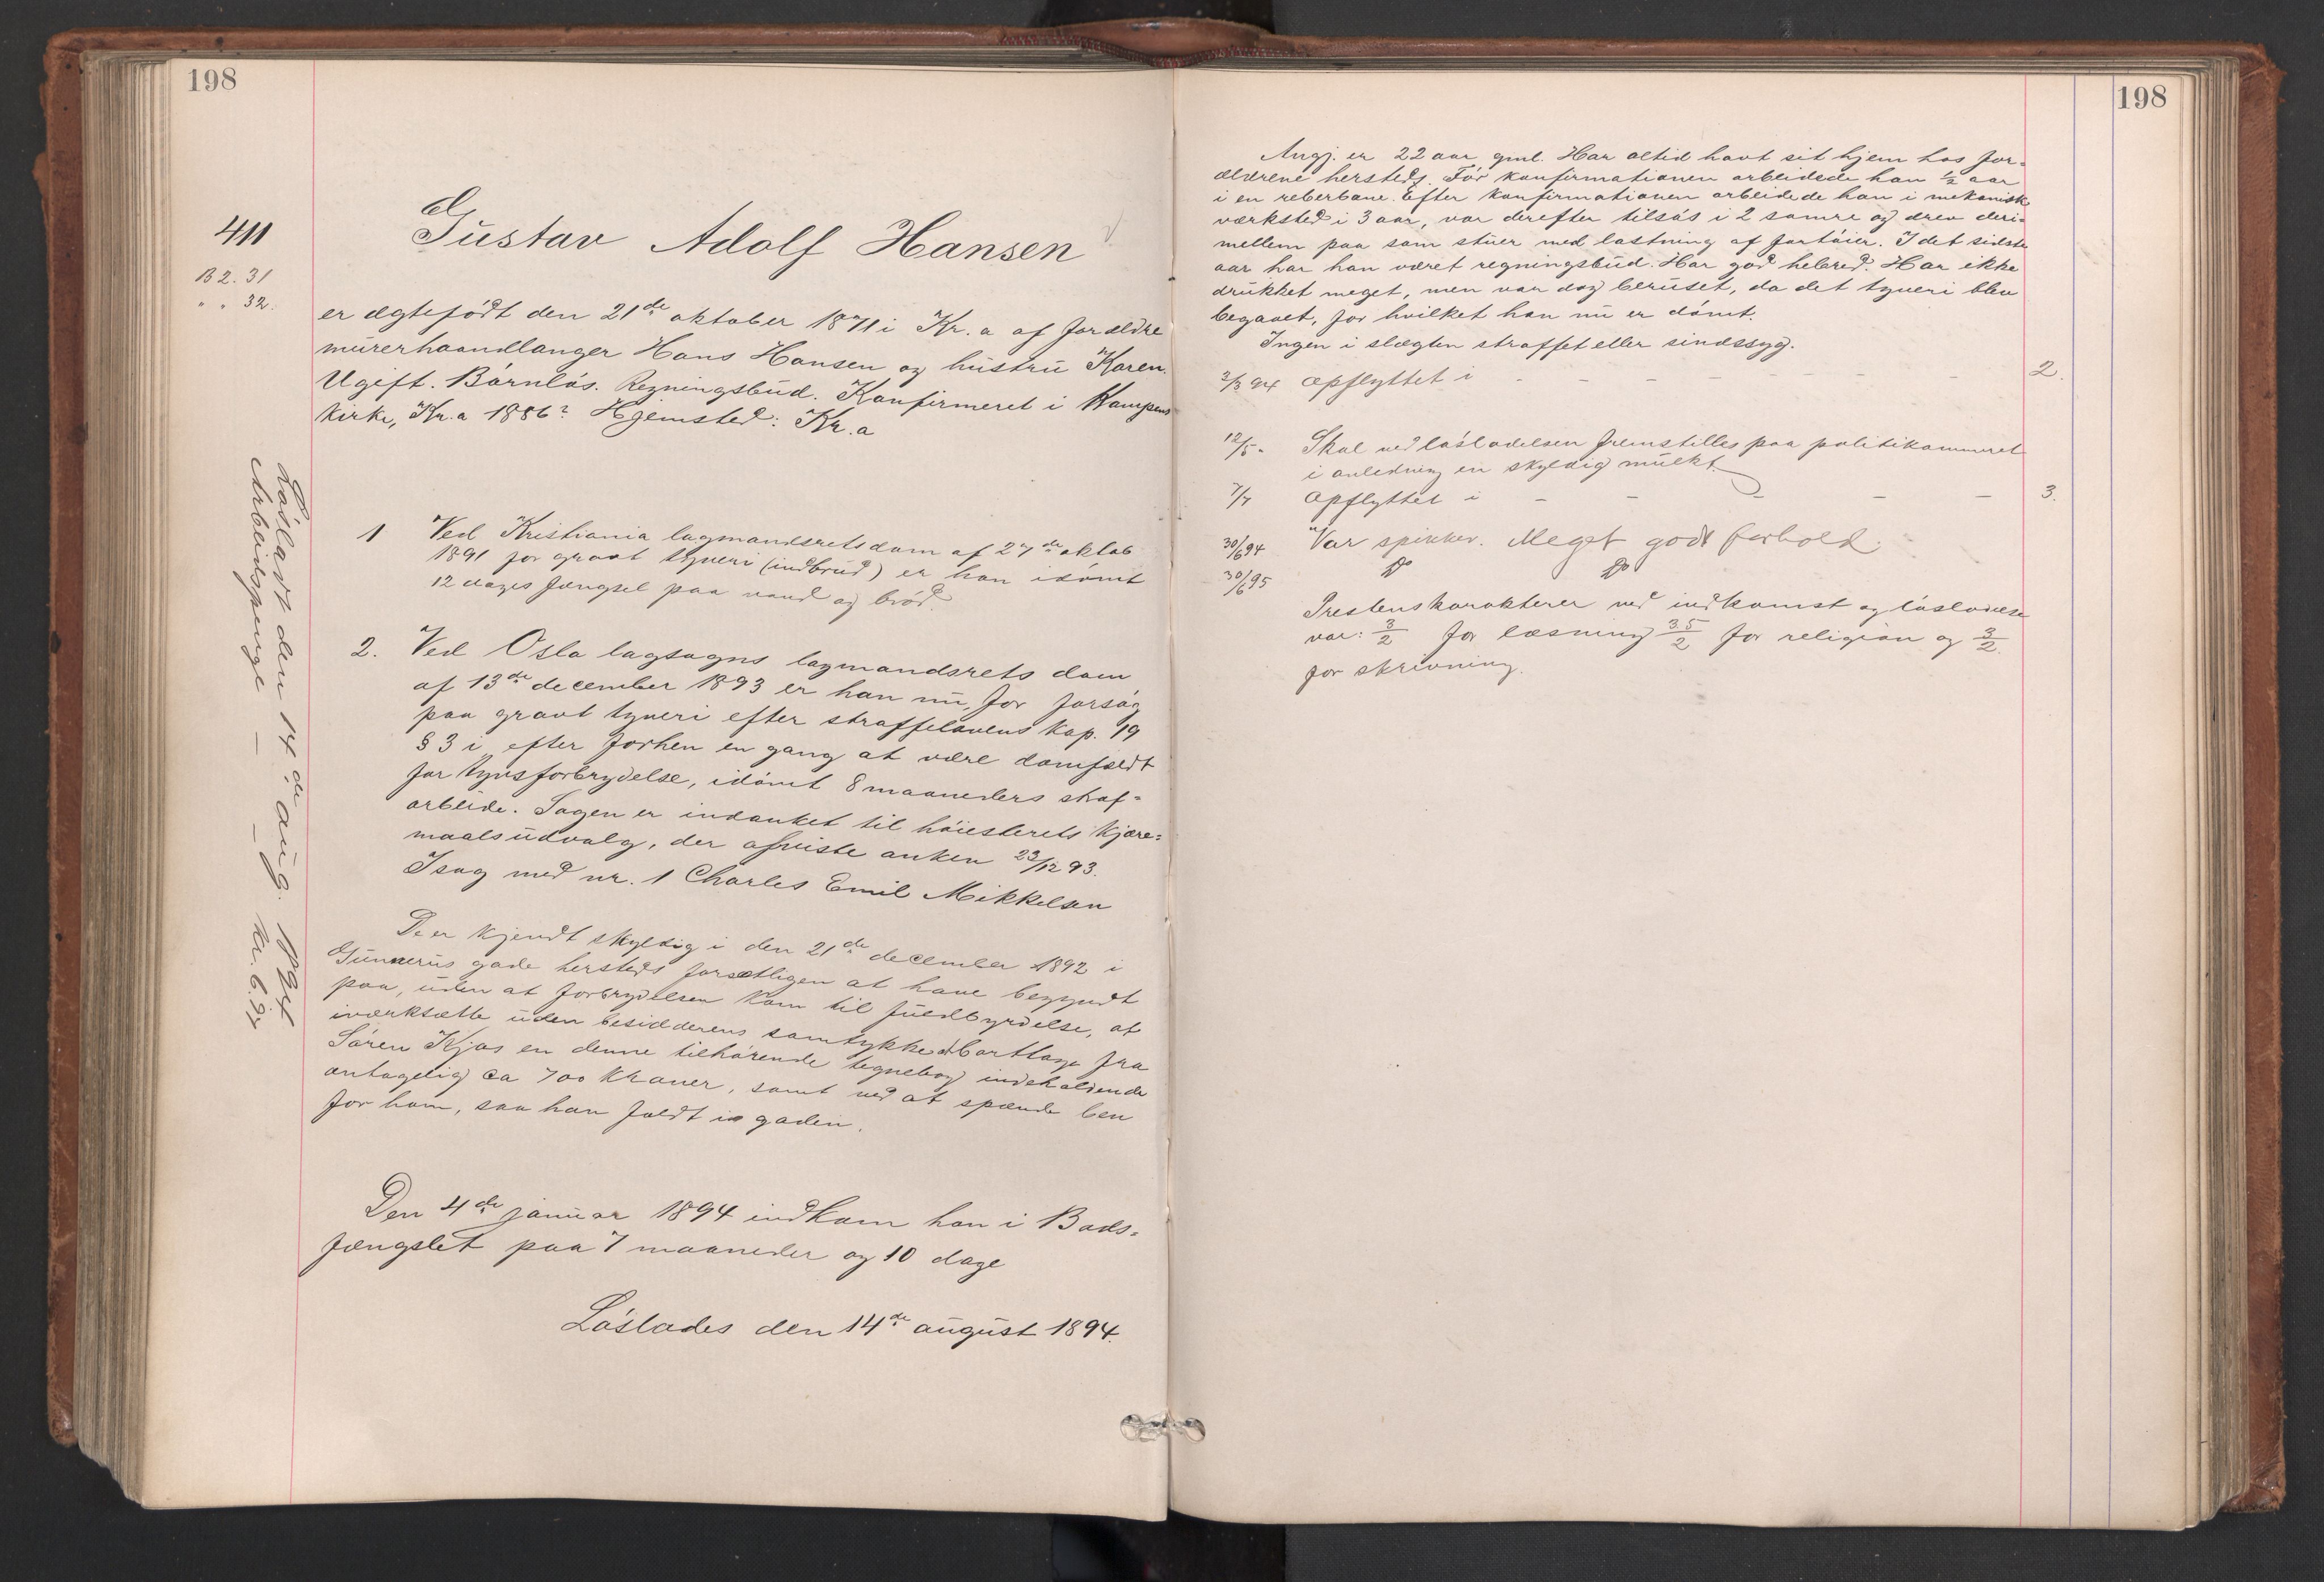 198
411
B 2. 31
" " 32.
Gustav Adolf Hansen
er ægtefødt den 21de oktober 1871 i Kr.a af forældre
murerhaandlanger Hans Hansen og hustru Karen.
Ugift. Barnløs. Regningsbud. Konfirmeret i Kampens
kirke, Kr.a 1886? Hjemsted: Kr.a
1 Ved Kristiania lagmandsrets dom af 27de oktob
1891 for grovt tyveri (indbrud) er han idømt
12 dages fængsel paa vand og brød.
2. Ved Oslo lagsogns lagmandsrets dom
af 13de december 1893 er han nu, for forsøg
paa grovt tyveri efter straffelovens kap. 19
§ 3 i, efter forhen en gang at være domfældt
for tyvsforbrydelse, idømt 8 maaneders straf-
arbeide. Sagen er indanket til høiesterets kjære-
maalsudvalg, der afviste anken 23/12 93.
I sag med nr. 1 Charles Emil Mikkelsen
De er kjendt skyldig i den 21de december 1892 i
Gunnerus gade hersteds forsætligen at have begyndt
paa, uden at forbrydelsen kom til fuldbyrdelse, at
iværksætte uden besidderens samtykke at borttage fra
Søren Kjos en denne tilhørende tegnebog indeholdende
antagelig ca 700 kroner, samt ved at spænde ben
for ham, saa han faldt i gaden.
Den 4de januar 1894 indkom han i Bods-
fængslet paa 7 maaneder og 10 dage
Løslades den 14de august 1894.
Løsladt den 14de aug. 1894
Arbeidspenge — — kr. 6.97
198
Angj. er 22 aar gml. Har altid havt sit hjem hos for-
ældrene hersteds. Før konfirmationen arbeidede han ½ aar
i en reberbane. Efter konfirmationen arbeidede han i mekanisk
værksted i 3 aar, var derefter tilsøs i 2 somre og drev deri-
mellem paa som stuer med lastning af fartøier. I det sidste
aar har han været regningsbud. Har god helbred. Har ikke
drukket meget, men var dog beruset, da det tyveri blev
begaaet, for hvilket han nu er dømt.
Ingen i slægten straffet eller sindssyg.
2/3 94 Opflyttet i - - - - - - 2.
12/5 - Skal ved løsladelsen fremstilles paa politikammeret
i anledning en skyldig mulkt.
7/7 Opflyttet i - - - - - 3.
30/6 94 Var spikker. Meget godt forhold.
30/6 95 Do Do
Prestens karakterer ved indkomst og løsladelse
var: 3/2 for læsning 3.5/2 for religion og 3/2
for skrivning.